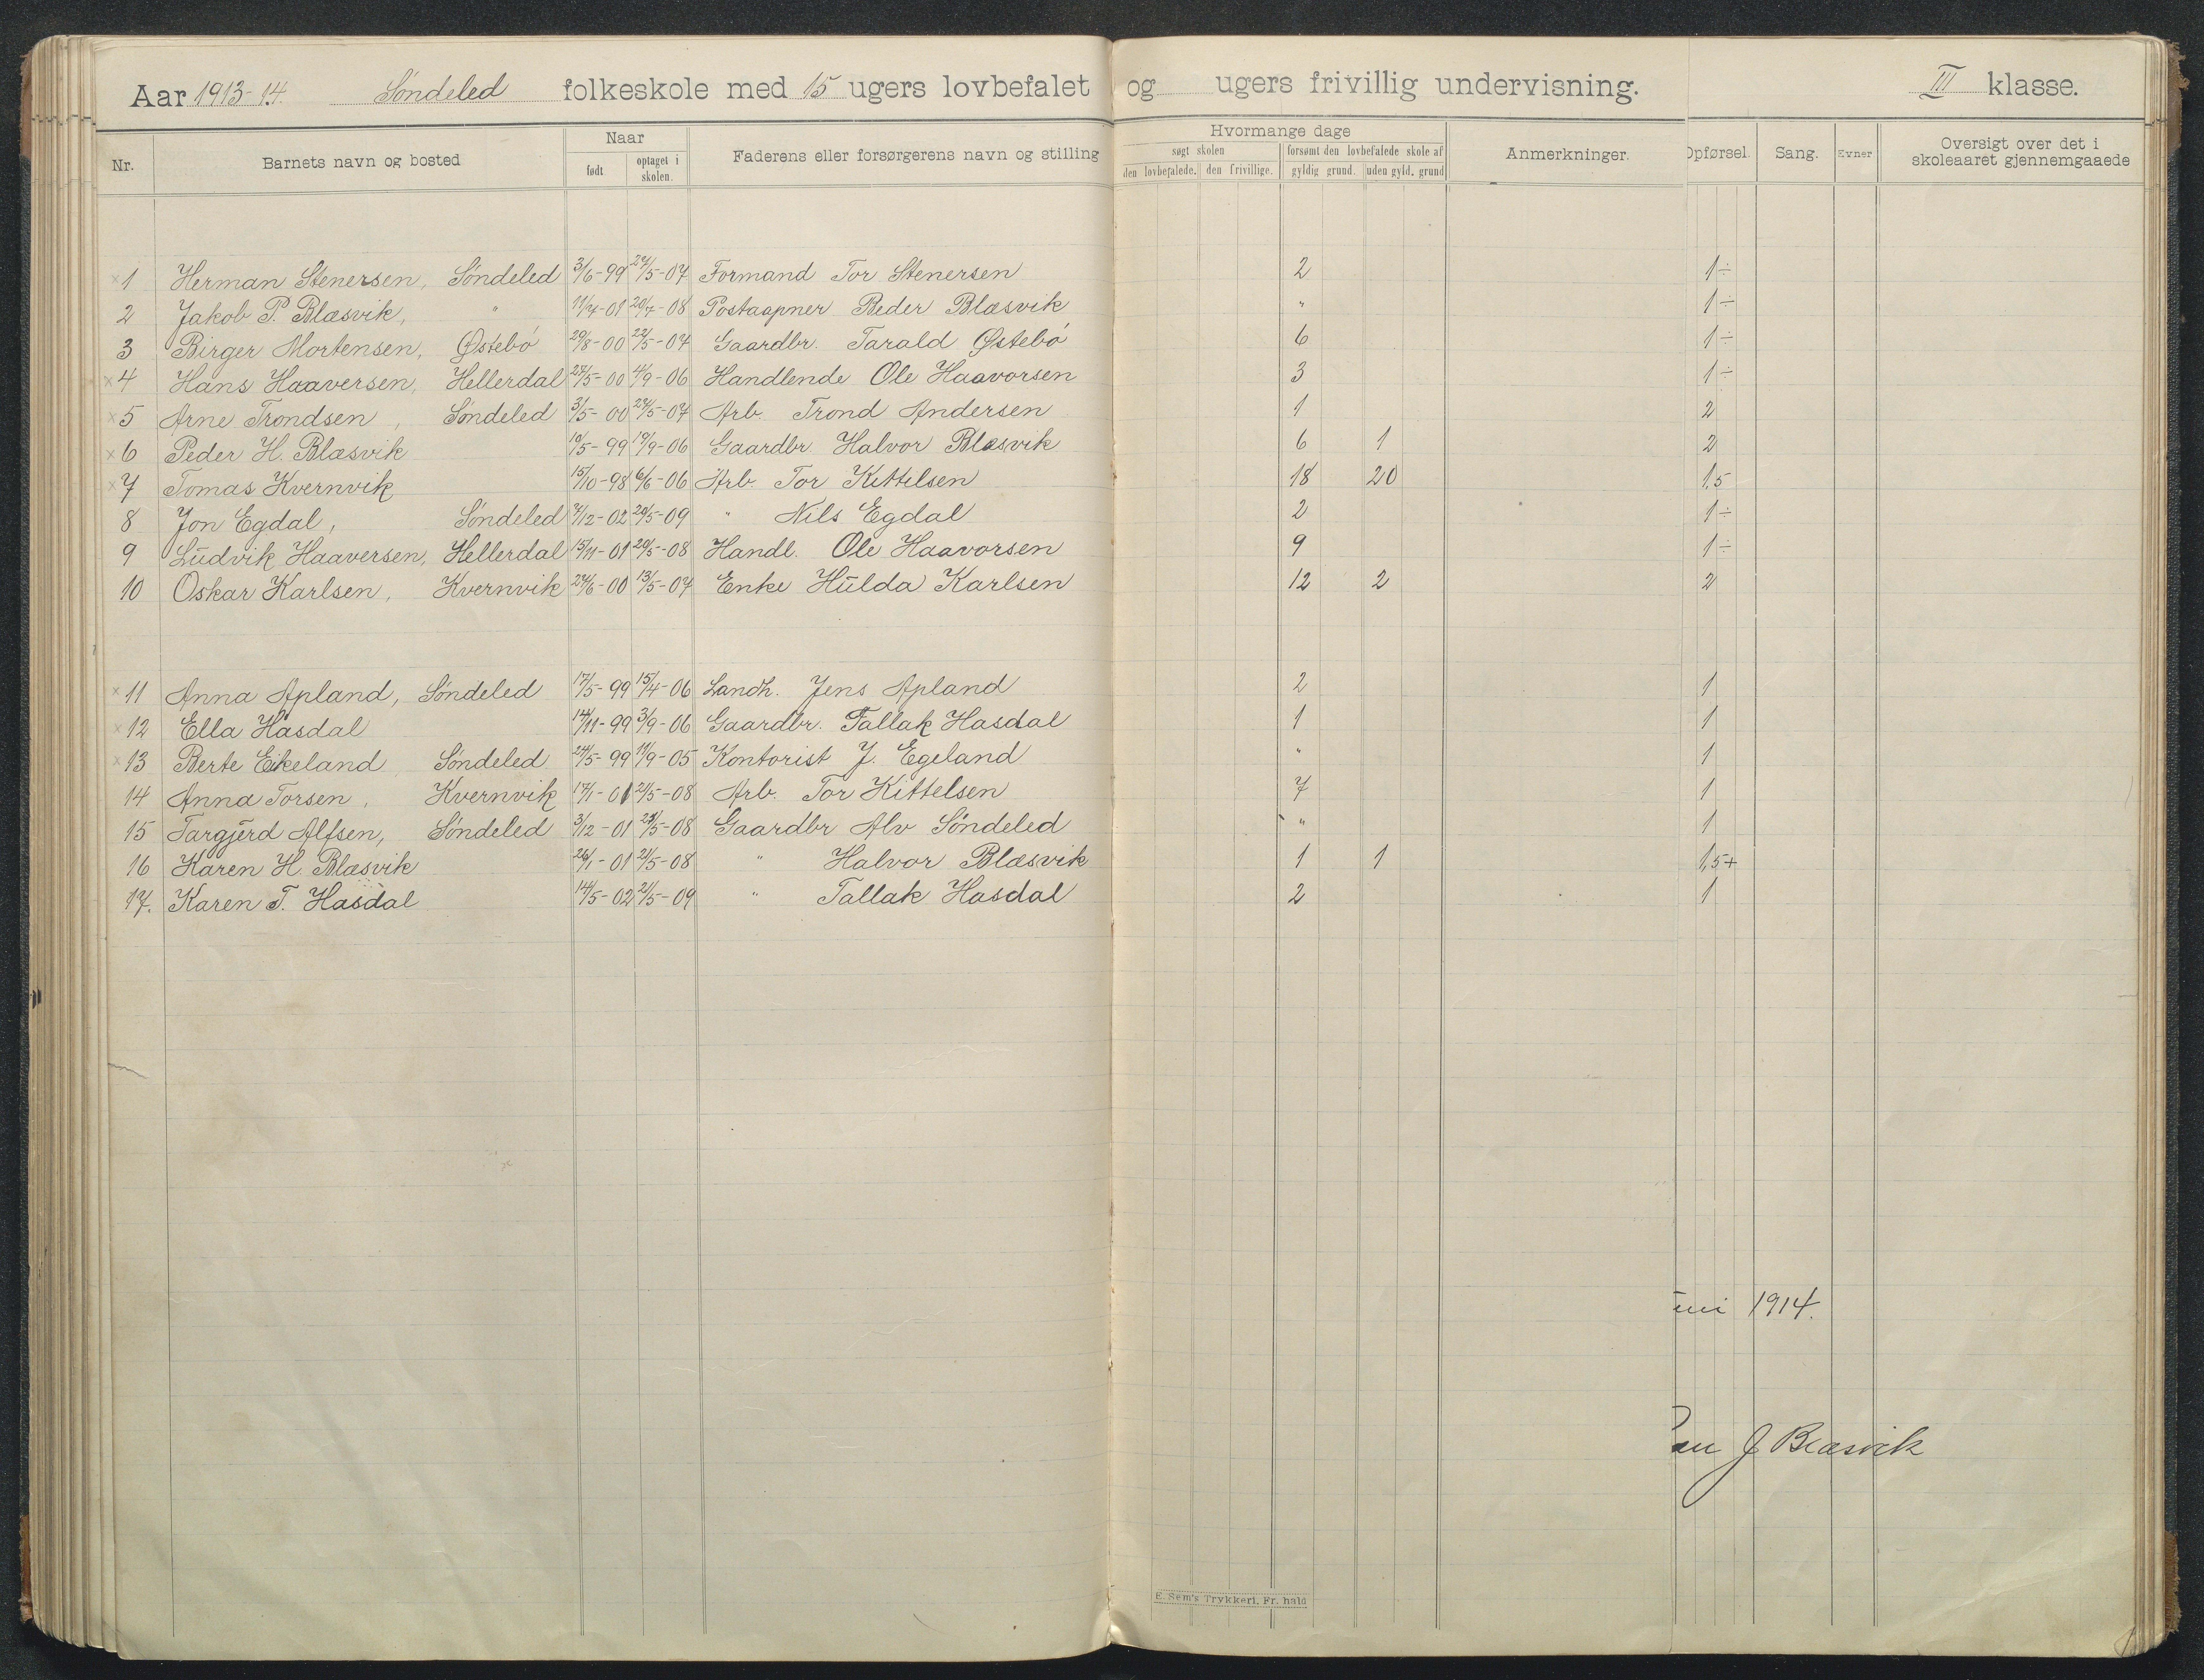 Aar 1913-14. Søndeled folkeskole med 15 ugers lovbefalet og ugers frivillig undervisning. III klasse.
Nr. Barnets navn og bosted Naar født optaget i skolen. Faderens eller forsørgerens navn og stilling Hvormange dage søgt skolen den lovbefalede. den frivillige. forsømt den lovbefalede skole af gyldig grund. uden gyld. grund Anmerkninger. Opførsel. Sang. Evner Oversigt over det i skoleaaret gjennemgaaede
× 1 Herman Stenersen, Søndeled 3/6-99 27/5-07 Formand Tor Stenersen 2 1÷
2 Jakob P. Blæsvik, " 11/7-01 20/7-08 Postaapner Peder Blæsvik " 1÷
3 Birger Mortensen, Østebø 29/8-00 22/5-07 Gaardbr. Tarald Østebø 6 1÷
× 4 Hans Haaversen, Hellerdal 27/5-00 4/9-06 Handlende Ole Haavorsen 3 1÷
× 5 Arne Trondsen, Søndeled 3/5-00 27/5-07 Arb. Trond Andersen 1 2
× 6 Peder H. Blæsvik 10/5-99 19/9-06 Gaardbr. Halvor Blæsvik 6 1 2
× 7 Tomas Kvernvik 15/10-98 6/6-06 Arb. Tor Kittilsen 18 20 1,5
8 Jon Egdal, Søndeled 7/12-02 20/5-09 " Nils Egdal 2 1÷
9 Ludvik Haaversen, Hellerdal 15/11-01 20/5-08 Handl. Ole Haavorsen 9 1÷
10 Oskar Karlsen, Kvernvik 27/6-00 13/5-07 Enke Hulda Karlsen 12 2 2
× 11 Anna Apland, Søndeled 17/5-99 15/4-06 Landh. Jens Apland 2 1
× 12 Ella Hasdal 14/11-99 3/9-06 Gaardbr. Tallak Hasdal 1 1
× 13 Berte Eikeland Søndeled 24/5-99 11/9-05 Kontorist J. Egeland " 1
14 Anna Torsen, Kvernvik 17/1-01 2/5-08 Arb. Tor Kittelsen 7 1
15 Targjerd Alfsen, Søndeled 3/12-01 21/5-08 Gaardbr Alv Søndeled " 1
16 Karen H. Blæsvik 26/1-01 2/5-08 " Halvor Blæsvik 1 1 1,5+
17. Karen T. Hasdal 14/5-02 2/5-09 " Tallak Hasdal 2 1
1914.
J Blæsvik
E. Sem's Trykkeri, Fr. hald